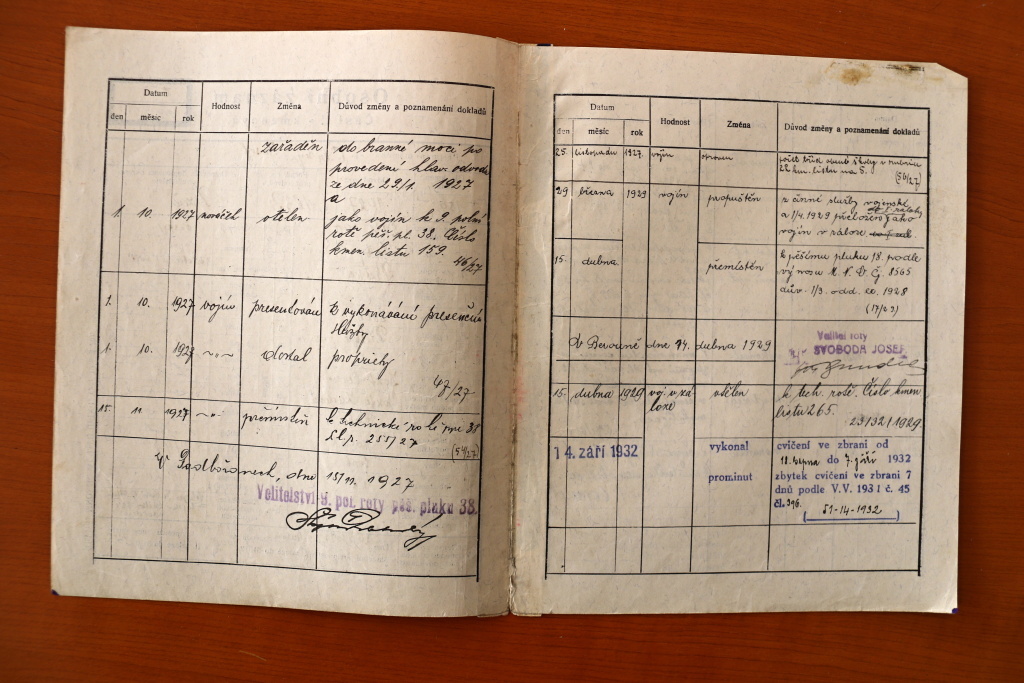 Datum
Hodnost
Změna
Důvod změny a poznamenání dokladů
den
měsíc
rok
zařáděn
do branné moci po
provedení hlav. odvodu
ze dne 29/1. 1927
a
1. 10. 1927 nováček
jako vojín k 9. polní
rotě pěš. pl. 38. Číslo
kmen. listu 159.
46/27
1. 10. 1927 vojín presentován
k vykonávání presenční
služby
1. 10. dostal
47/27
15. 11 1927 přemístěn
k technické rotě 38
255/27
dne 15/11. 1927
Velitelství 9. pol. roty pěš. pluku 38.
Datum
Hodnost
Změna
Důvod změny a poznamenání dokladů
den
měsíc
rok
25. listopadu 1927. vojín
22 km. listu na 5.
(56/27)
29 března 1929 vojín propuštěn
z činné služby vojenské
a 1/4. 1929 přeložen jako
vojín v záloze
15. dubna přemístěn
k pěšímu pluku 18. podle
výnosu M. N. O. Č. 8565
dův. 1/3. odd. ex. 1928
(17/29)
V Berouně dne 14. dubna 1929
Velitel roty
SVOBODA JOSEF
15. dubna 1929 voj. v zá-
loze
vtělen
k tech. rotě. Číslo kmen.
listu 265.
23/32/1929
14. září 1932
vykonal
cvičení ve zbrani od
do 7. září 1932
prominut
zbytek cvičení ve zbrani 7
dnů podle V.V. 1931 č. 45
čl. 396.
(51-14-1932)